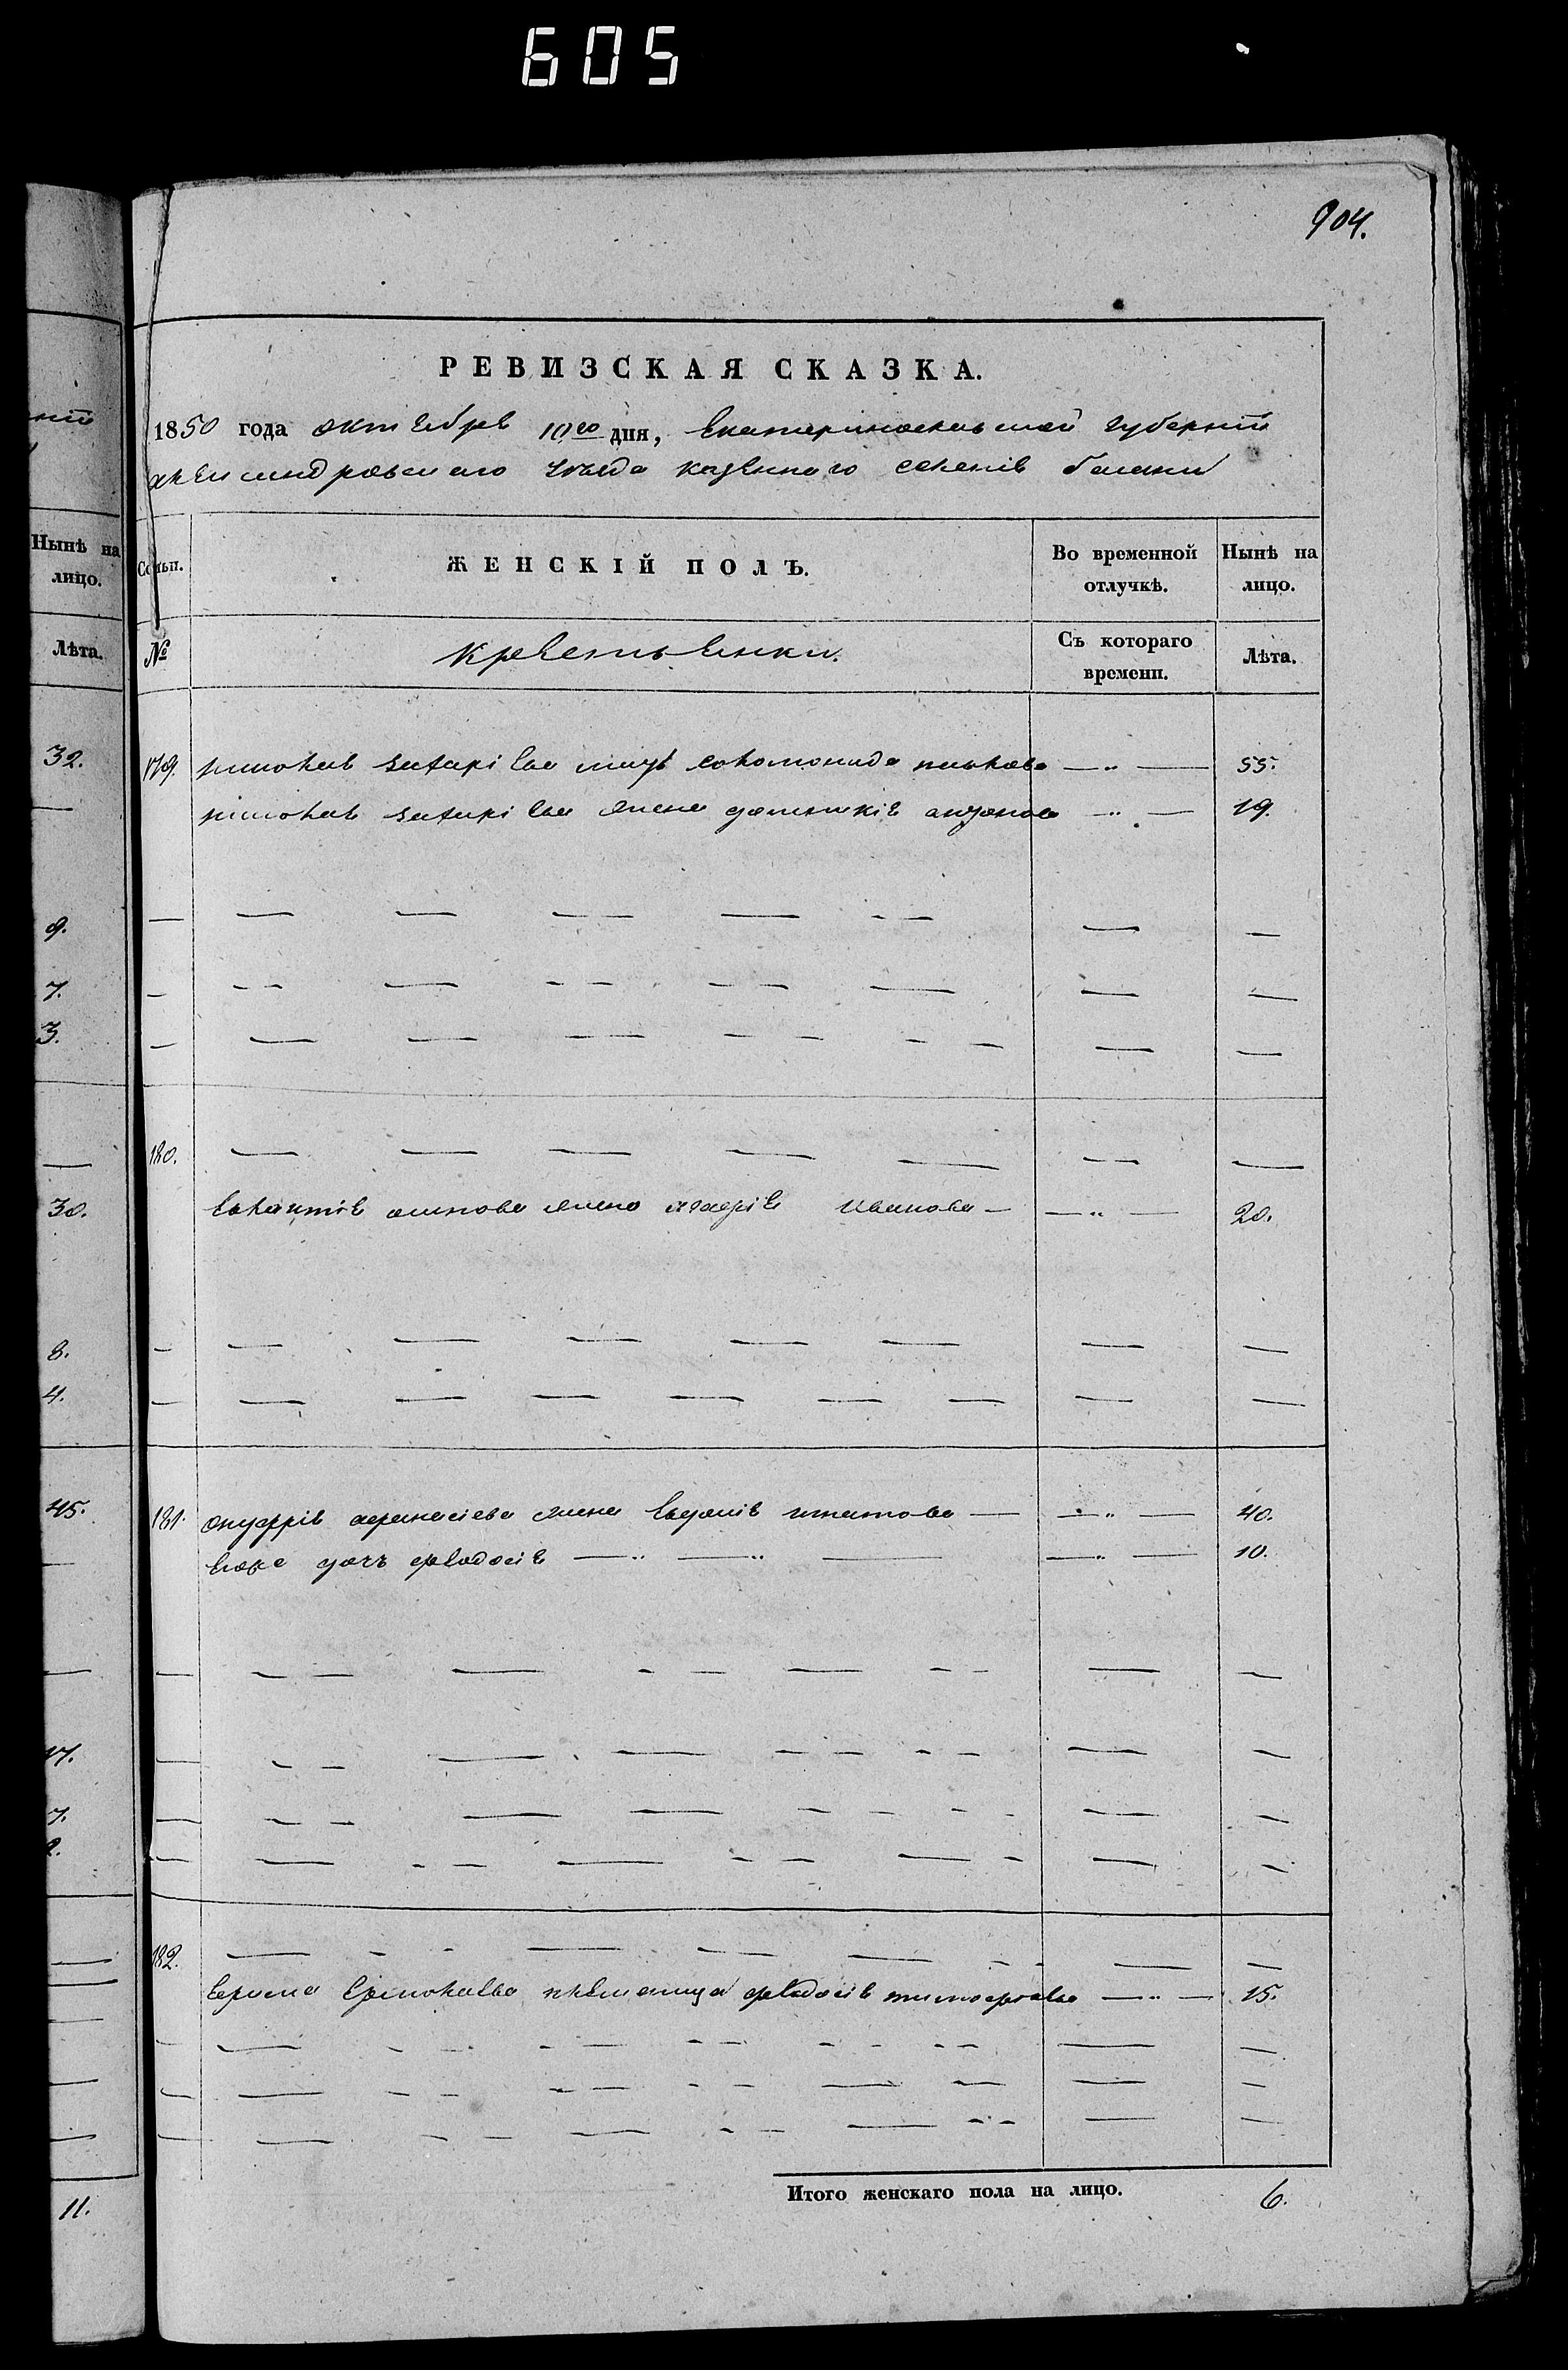 605
904.
РЕВИЗСКАЯ СКАЗКА.
1850 года октября 10го дня, Екатеринославской губернiи
Александровского уѣзда казенного селенiя балки
Нынѣ на лицо.
Лѣта.
Семьи.
ЖЕНСКIЙ ПОЛЪ.
Во временной отлучкѣ.
Нынѣ на лицо.
№
Крестьянки.
Съ котораго времени.
Лѣта.
32.
179. захарiева мать соломонида павлова — „ — 55.
захарiева жена антонова — „ — 19.
9.
7.
3.
180.
30.
осипова жена марiя Иванова — — „ — 20.
8.
4.
45.
181. онуфрiя афанасiева жена Евдокiя игнатова — — „ — 40.
Его дочь федосiя — „ — „ — — „ — 10.
17.
7.
2.
182.
Ермолаева племяница федосiя тимофеева — „ — 15.
11.
Итого женскаго пола на лицо. 6.